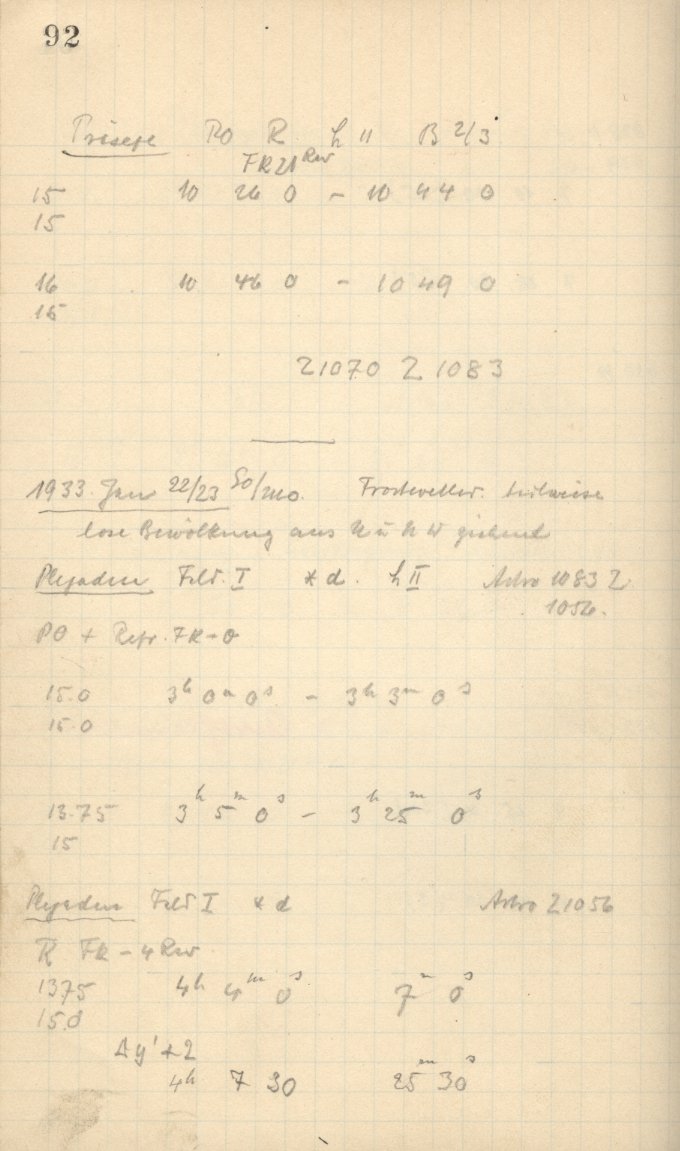 92
Präsepe PO R h II B 2/3
FR 21 Rev
15 10 26 0 - 10 44 0
15
16 10 46 0 - 10 49 0
15
Z1070 Z 1083
1933 Jan 22/23 So/Mo. Frostwetter. teilweise
lose Bewölkung aus N u N W ziehend
Plejaden Feld. I * d. h II Astro 1083 Z
1056.
PO + Refr. FR - 0
15.0 3h 0m 0s - 3h 3m 0s
15.0
13.75 3h 5m 0s - 3h 25m 0s
15
Plejaden Feld I * d Astro Z1056
R FR - 4 Rev
1375 4h 4m 0s 7m 0s
15.0
Δy' + 2
4h 7 30 25m 30s